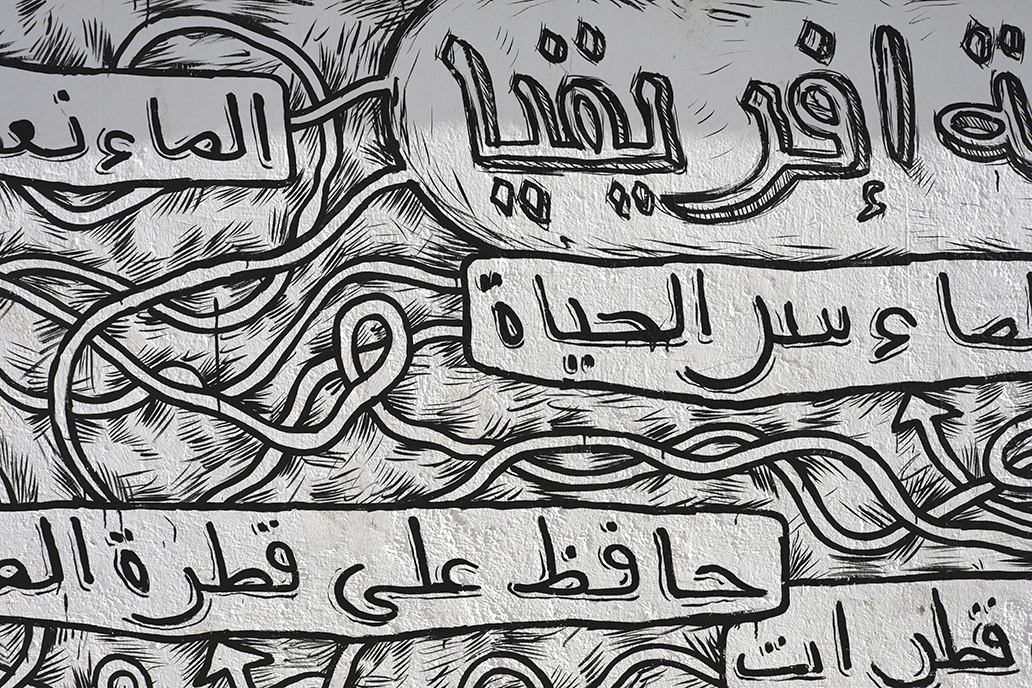 إفريقيا
الماء
الماء سر الحياة
حافظ على قطرة
قطرات